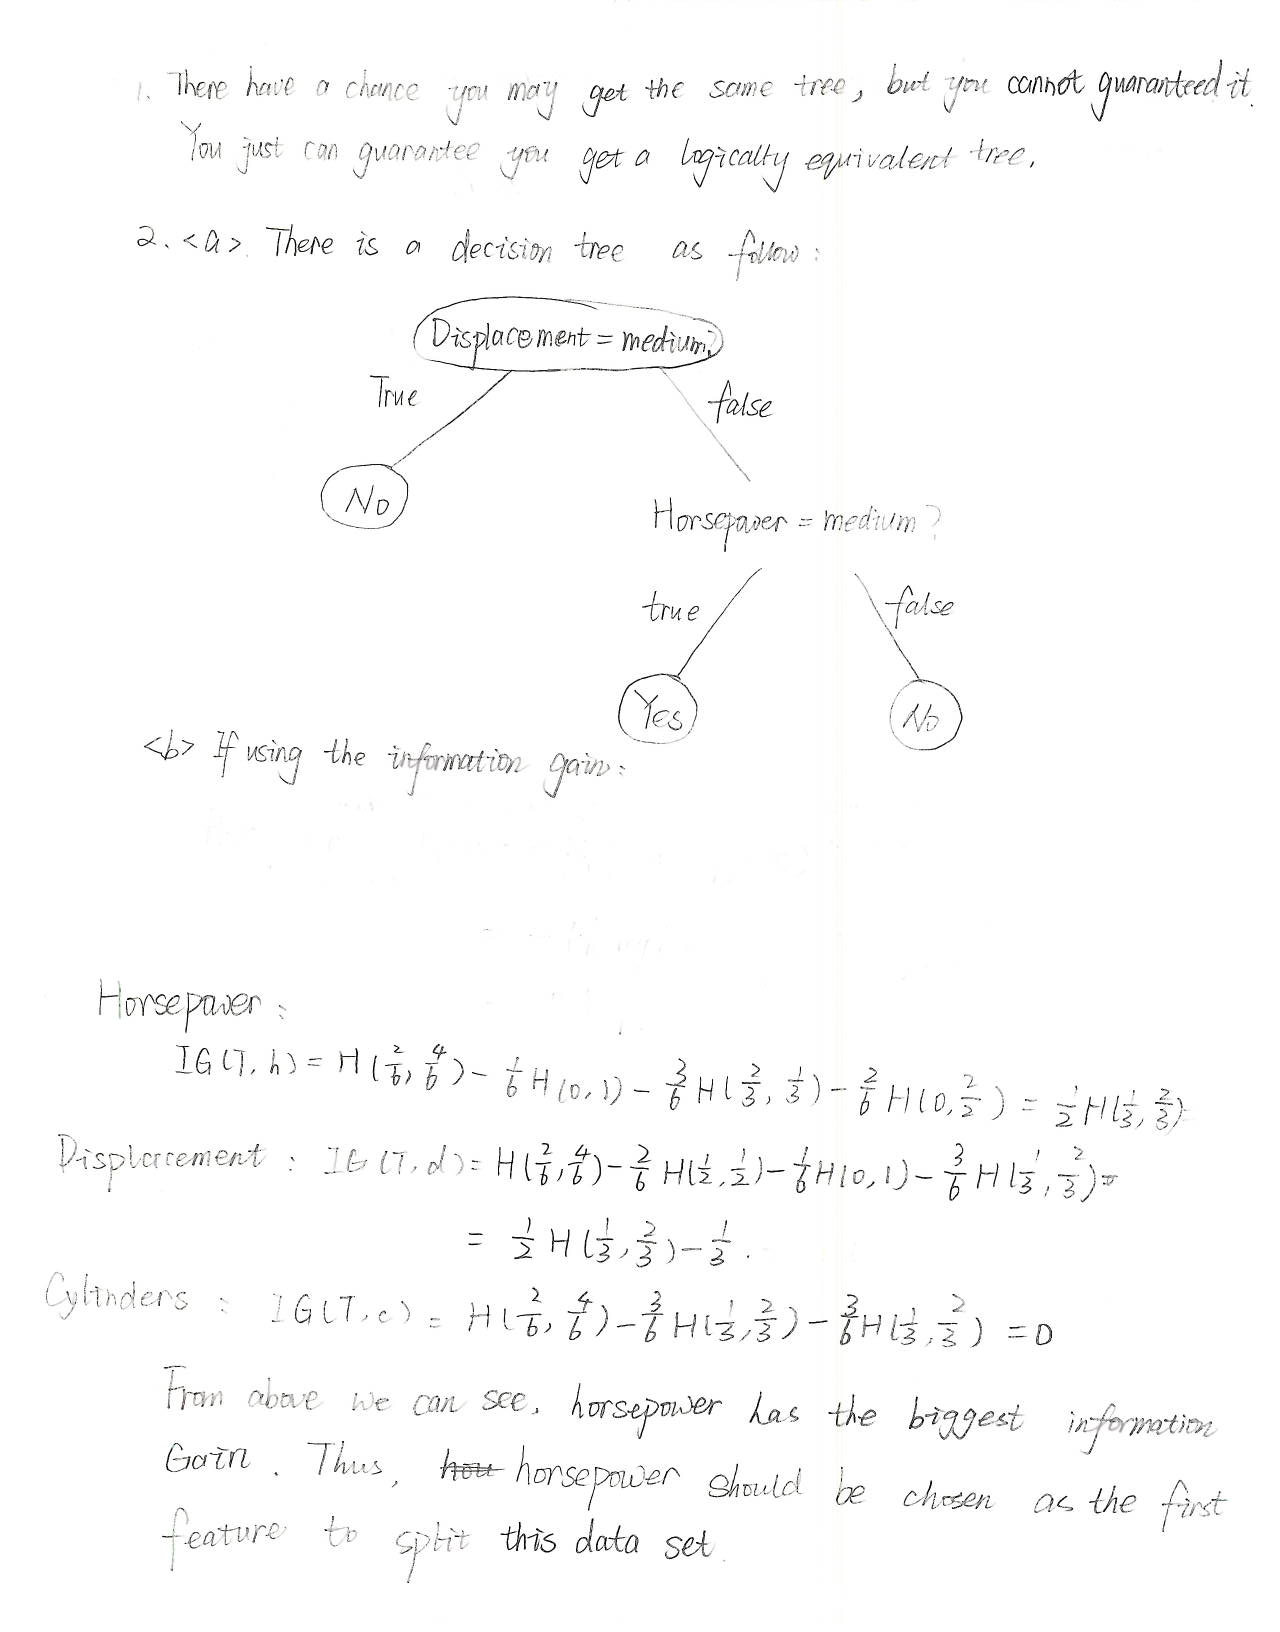 1. There have a chance you may get the same tree, but you cannot guaranteed it.
You just can guarantee you get a logically equivalent tree.
2. <a>. There is a decision tree as follow:
Displacement = medium?
True false
No
Horsepower = medium?
true false
Yes No
<b> If using the information gain:
Horsepower:
IG(T, h) = H(2/6, 4/6) - 1/6 H(0, 1) - 3/6 H(2/3, 1/3) - 2/6 H(0, 2/2) = 1/2 H(1/3, 2/3)
Displacement: IG(T, d) = H(2/6, 4/6) - 2/6 H(1/2, 1/2) - 1/6 H(0, 1) - 3/6 H(1/3, 2/3) =
= 1/2 H(1/3, 2/3) - 1/3.
Cylinders: IG(T, c) = H(2/6, 4/6) - 3/6 H(1/3, 2/3) - 3/6 H(1/3, 2/3) = 0
From above we can see, horsepower has the biggest information
Gain. Thus, horsepower should be chosen as the first
feature to split this data set.